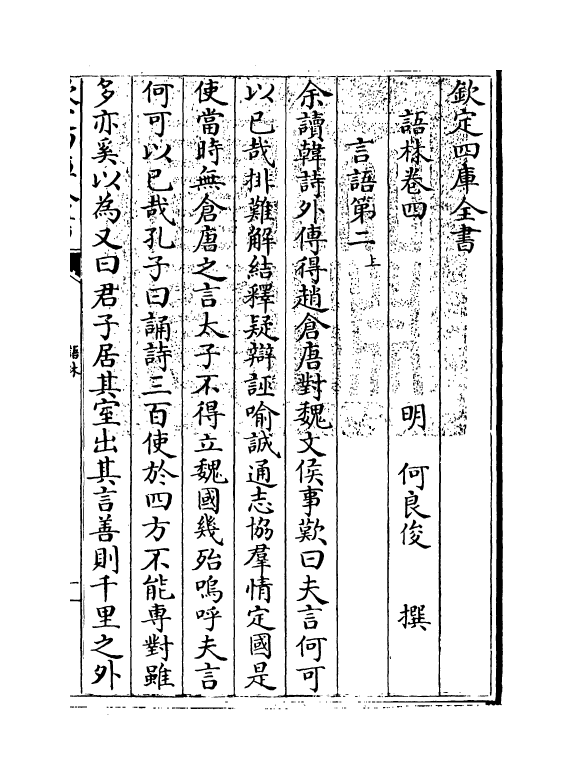 欽定四庫全書
語林卷四
明 何良俊 撰
言語第二上
余讀韓詩外傳得趙倉唐對魏文侯事歎曰夫言何可
以已哉排難解結釋疑辯誣喻誠通志協羣情定國是
使當時無倉唐之言太子不得立魏國幾殆嗚呼夫言
何可以已哉孔子曰誦詩三百使於四方不能專對雖
多亦奚以為又曰君子居其室出其言善則千里之外
語林
一